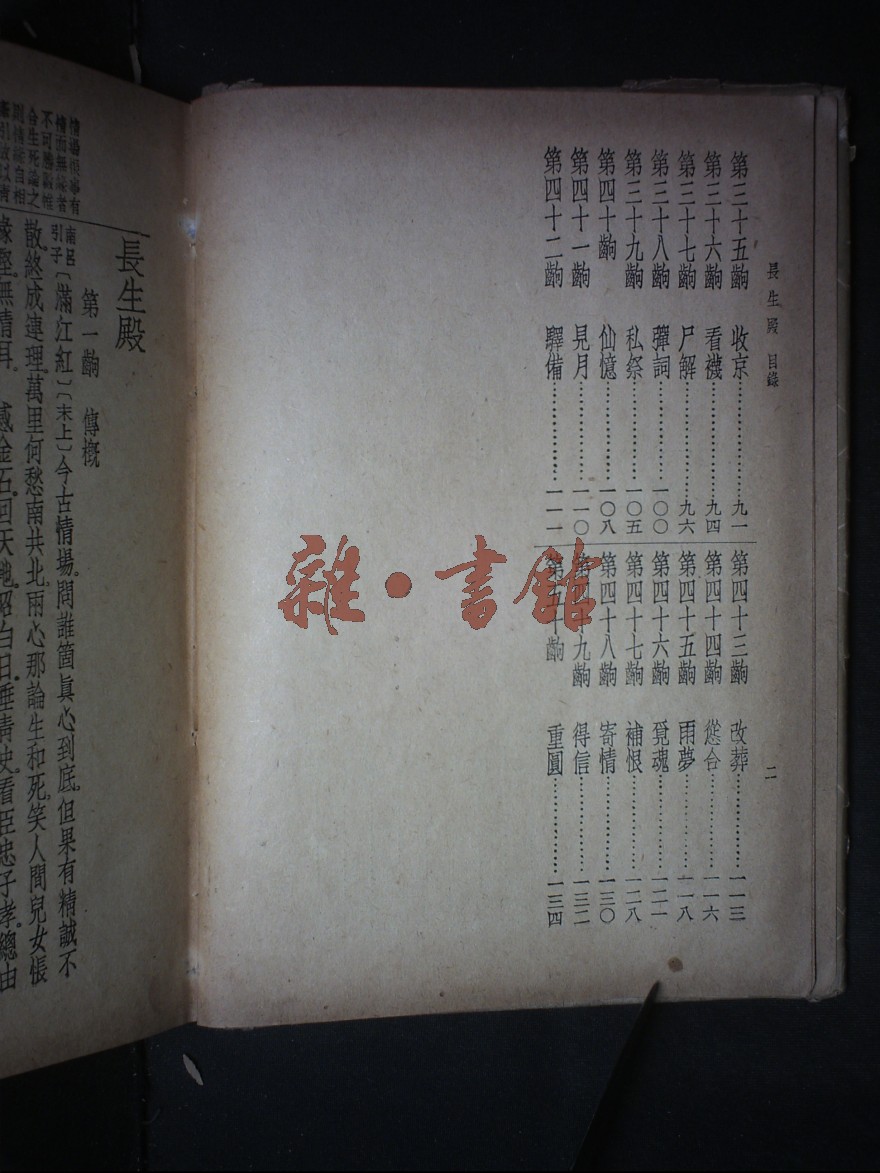 長生殿 目錄
二
第三十五齣 收京…………………九一
第三十六齣 看襪…………………九四
第三十七齣 尸解…………………九六
第三十八齣 彈詞…………………一〇〇
第三十九齣 私祭…………………一〇五
第四十齣 仙憶…………………一〇八
第四十一齣 見月…………………一一〇
第四十二齣 驛備…………………一一一
第四十三齣 改葬…………………一一三
第四十四齣 慫合…………………一一六
第四十五齣 雨夢…………………一一八
第四十六齣 覓魂…………………一二一
第四十七齣 補恨…………………一二八
第四十八齣 寄情…………………一三〇
第四十九齣 得信…………………一三二
第五十齣 重圓…………………一三四
雜·書館
長生殿
第一齣 傳槪
南呂引子〔滿江紅〕〔末上〕今古情場。問誰箇眞心到底。但果有精誠不
散。終成連理。萬里何愁南共北。兩心那論生和死。笑人間兒女悵
緣慳。無情耳。 感金石。回天地。昭白日。垂靑史。看臣忠子孝。總由
情場恨事有
情而無緣者
不可勝數惟
合生死論之
則情緣自相